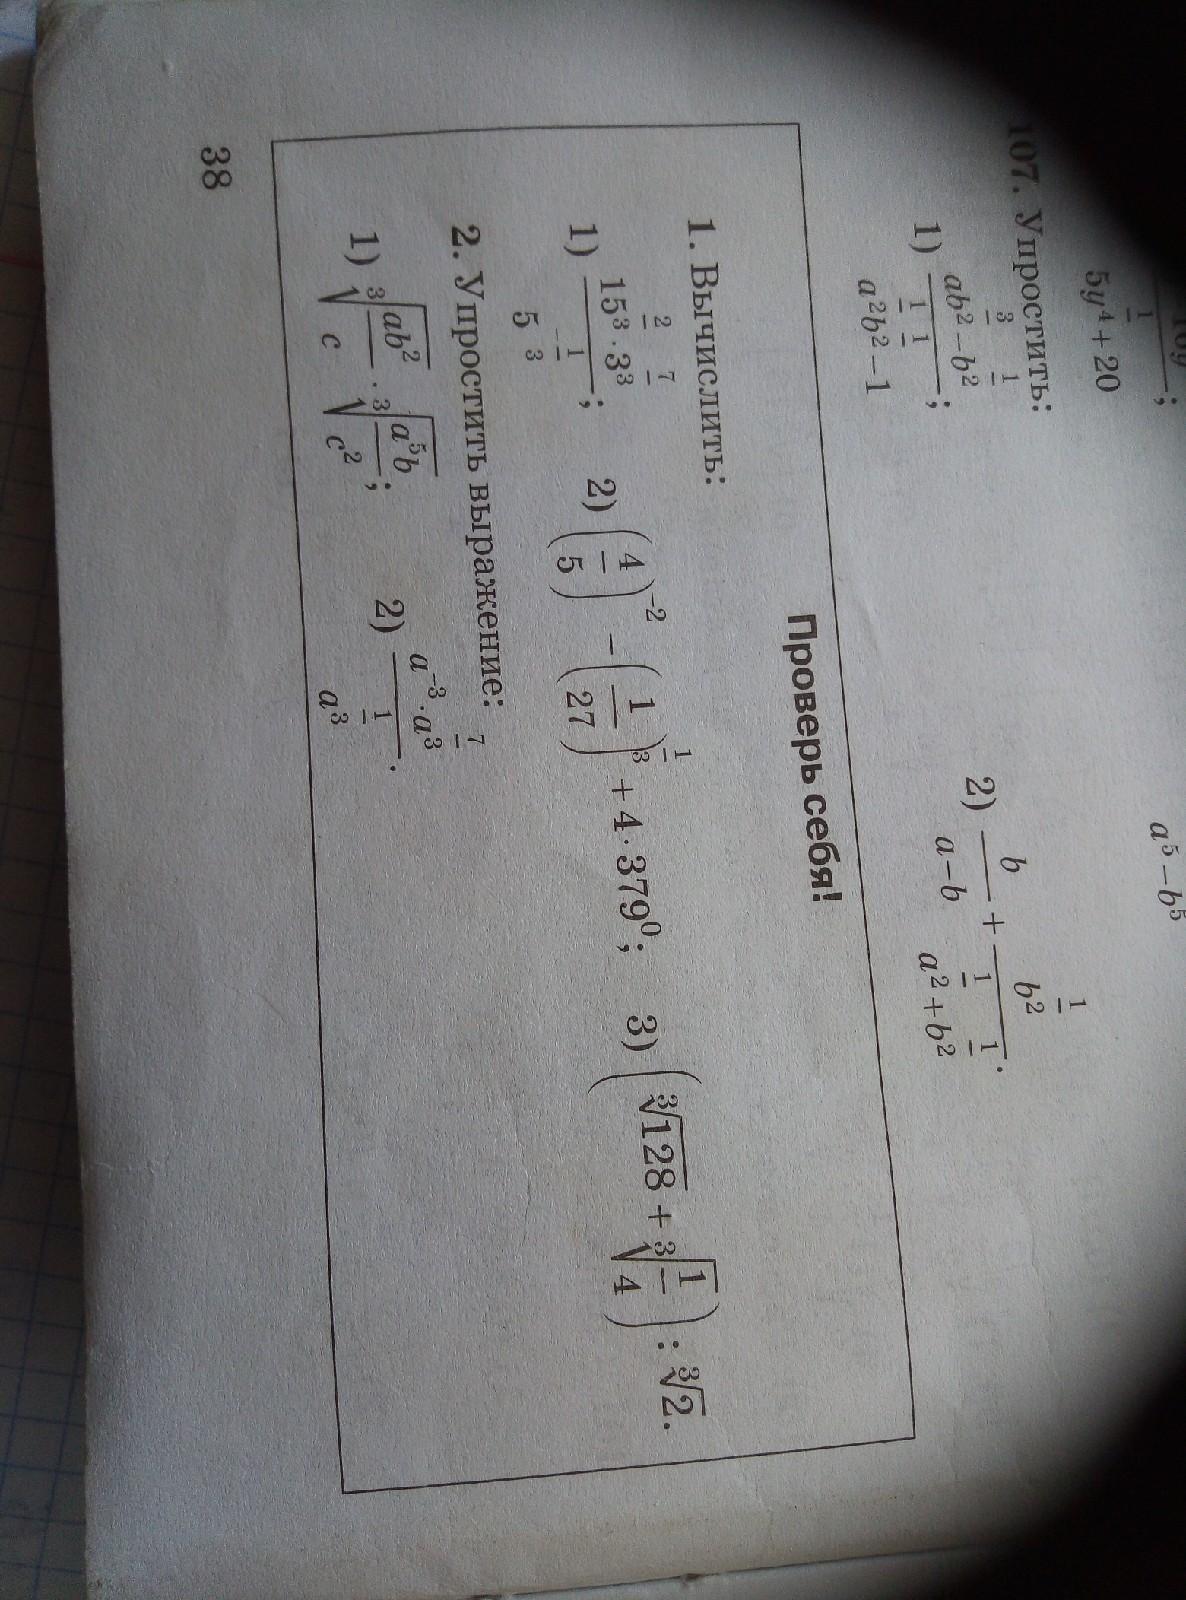 10y
5y^{1/4} + 20 ;
a^5 - b^5
107. Упростить:
1) \frac{ab^{3/2} - b^{1/2}}{a^{1/2}b^{1/2} - 1}; 2) \frac{b}{a-b} + \frac{b^{1/2}}{a^{1/2} + b^{1/2}}.
Проверь себя!
1. Вычислить:
1) \frac{15^{2/3} · 3^{7/3}}{5^{-1/3}}; 2) (\frac{4}{5})^{-2} - (\frac{1}{27})^{1/3} + 4 · 379^0; 3) (\sqrt[3]{128} + \sqrt[3]{\frac{1}{4}}) : \sqrt[3]{2}.
2. Упростить выражение:
1) \sqrt[3]{\frac{ab^2}{c}} · \sqrt[3]{\frac{a^5b}{c^2}}; 2) \frac{a^{-3} · a^{7/3}}{a^{1/3}}.
38